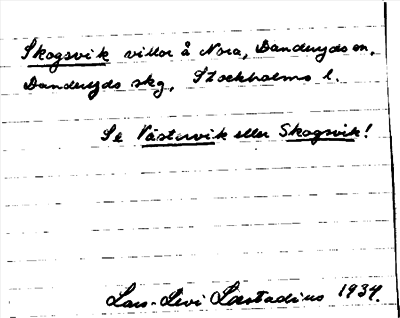 Skogsvik villor å Nora, Danderyds sn,
Danderyds skg, Stockholms l.
Se Västervik eller Skogsvik!
Lars-Levi Læstadius 1934.